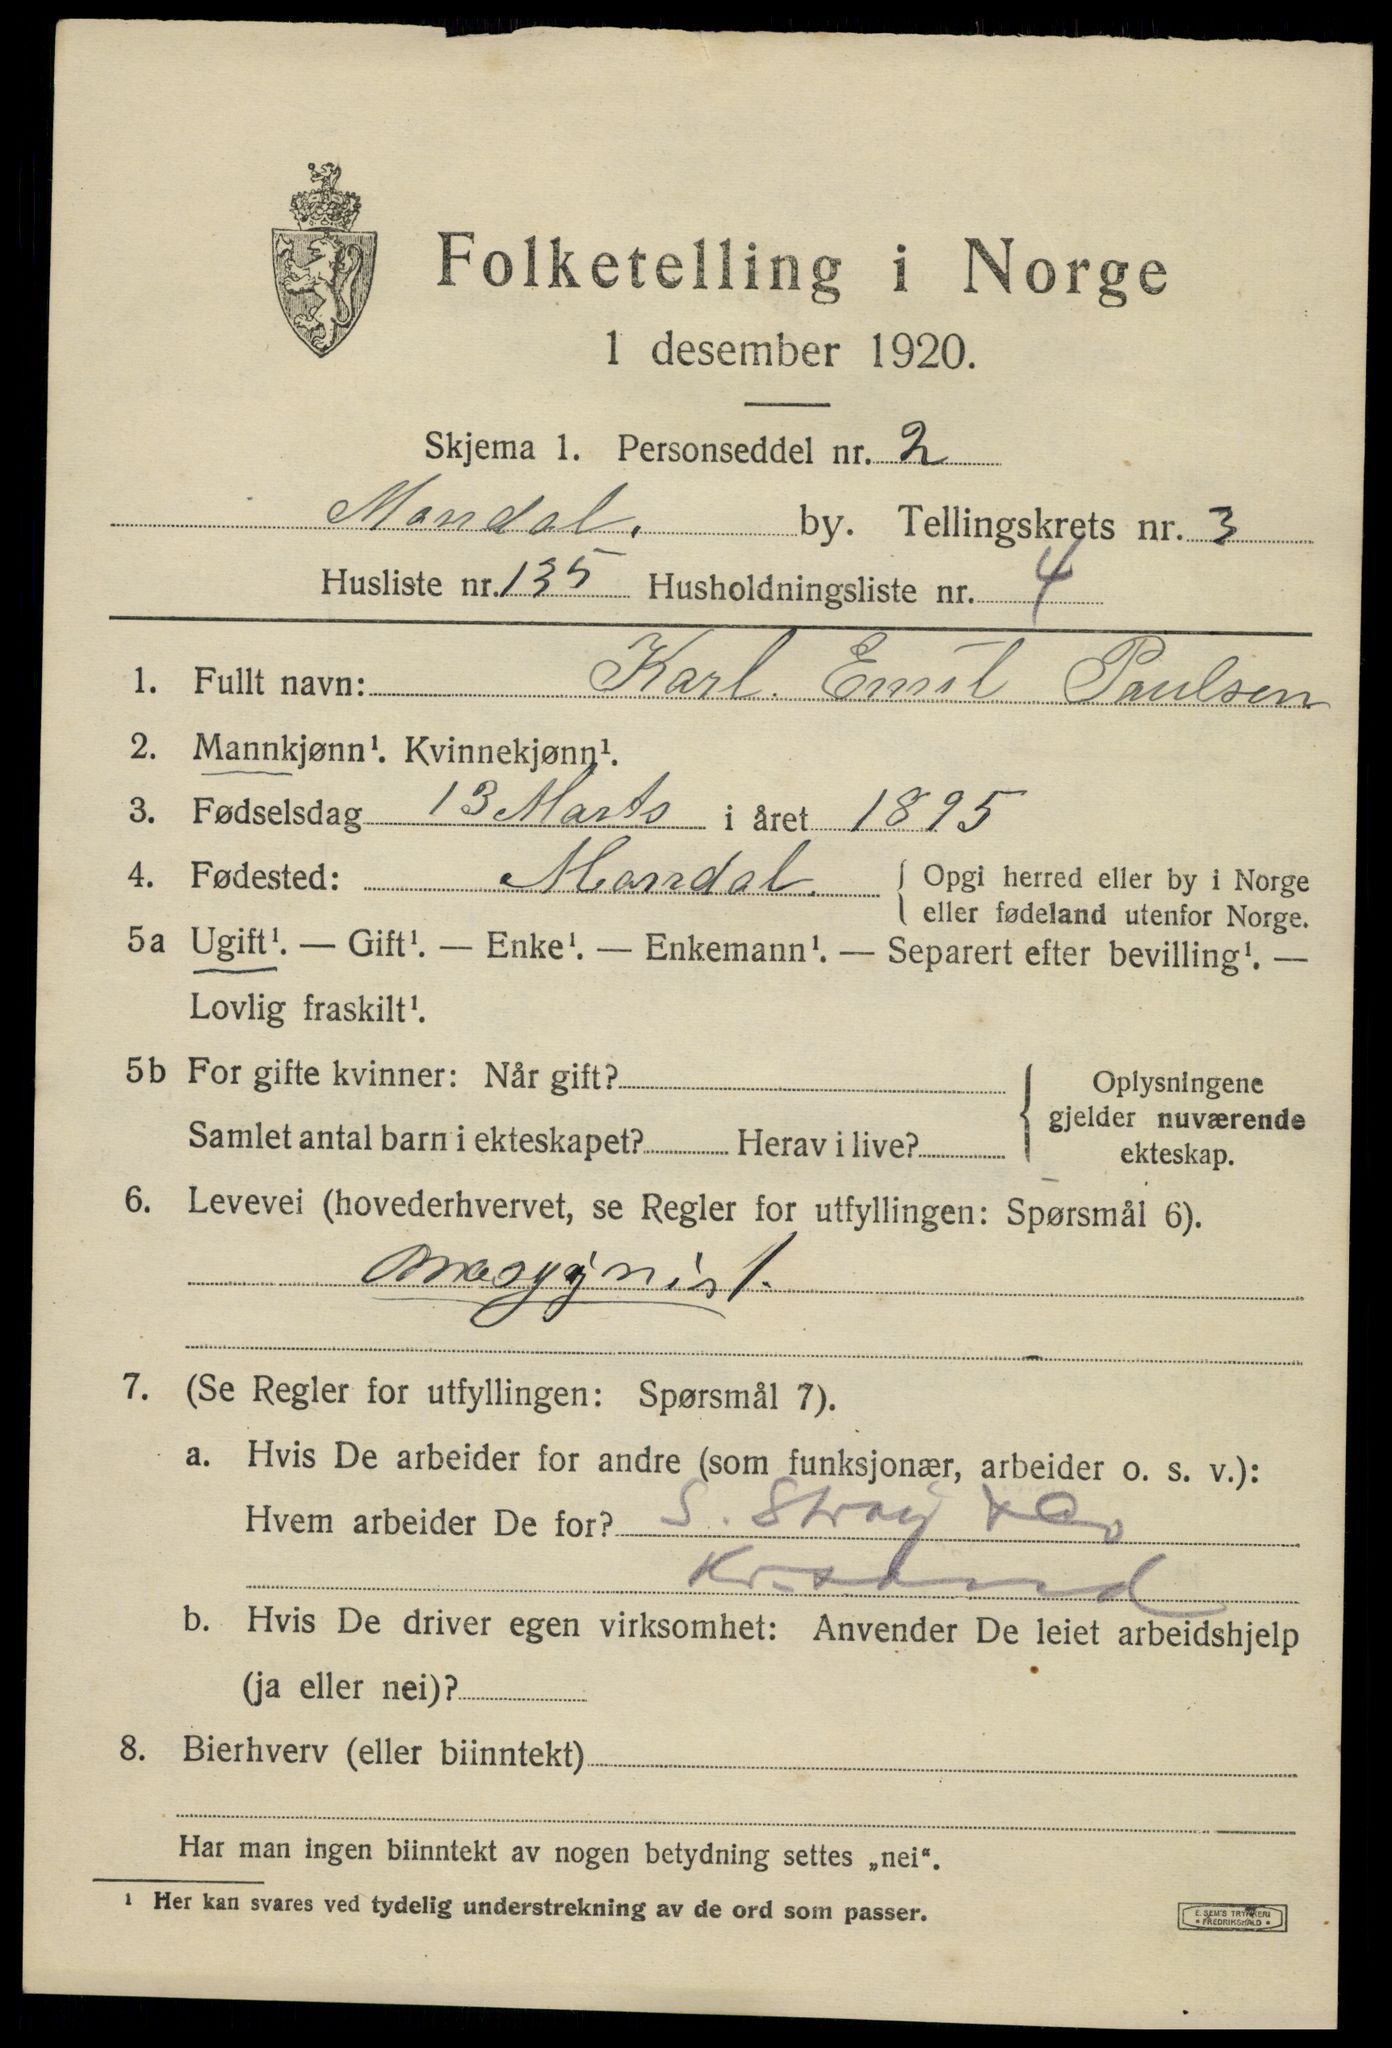 Folketelling i Norge
1 desember 1920.
Skjema 1. Personseddel nr. 2
Mandal. by. Tellingskrets nr. 3
Husliste nr. 135 Husholdningsliste nr. 4
1. Fullt navn: Karl. Emil Paulsen
2. Mannkjønn¹. Kvinnekjønn¹.
3. Fødselsdag 13 Marts i året 1895
4. Fødested: Mandal. { Opgi herred eller by i Norge
eller fødeland utenfor Norge.
5a Ugift¹. — Gift¹. — Enke¹. — Enkemann¹. — Separert efter bevilling¹. —
Lovlig fraskilt¹.
5b For gifte kvinner: Når gift? { Oplysningene
gjelder nuværende
Samlet antal barn i ekteskapet? Herav i live?
ekteskap.
6. Levevei (hovederhvervet, se Regler for utfyllingen: Spørsmål 6).
7. (Se Regler for utfyllingen: Spørsmål 7).
a. Hvis De arbeider for andre (som funksjonær, arbeider o. s. v.):
Hvem arbeider De for? S. Stray & Co
Kr.sand
b. Hvis De driver egen virksomhet: Anvender De leiet arbeidshjelp
(ja eller nei)?
8. Bierhverv (eller biinntekt)
Har man ingen biinntekt av nogen betydning settes „nei“.
¹ Her kan svares ved tydelig understrekning av de ord som passer.
E. SEM'S TRYKKERI
* FREDRIKSHALD *